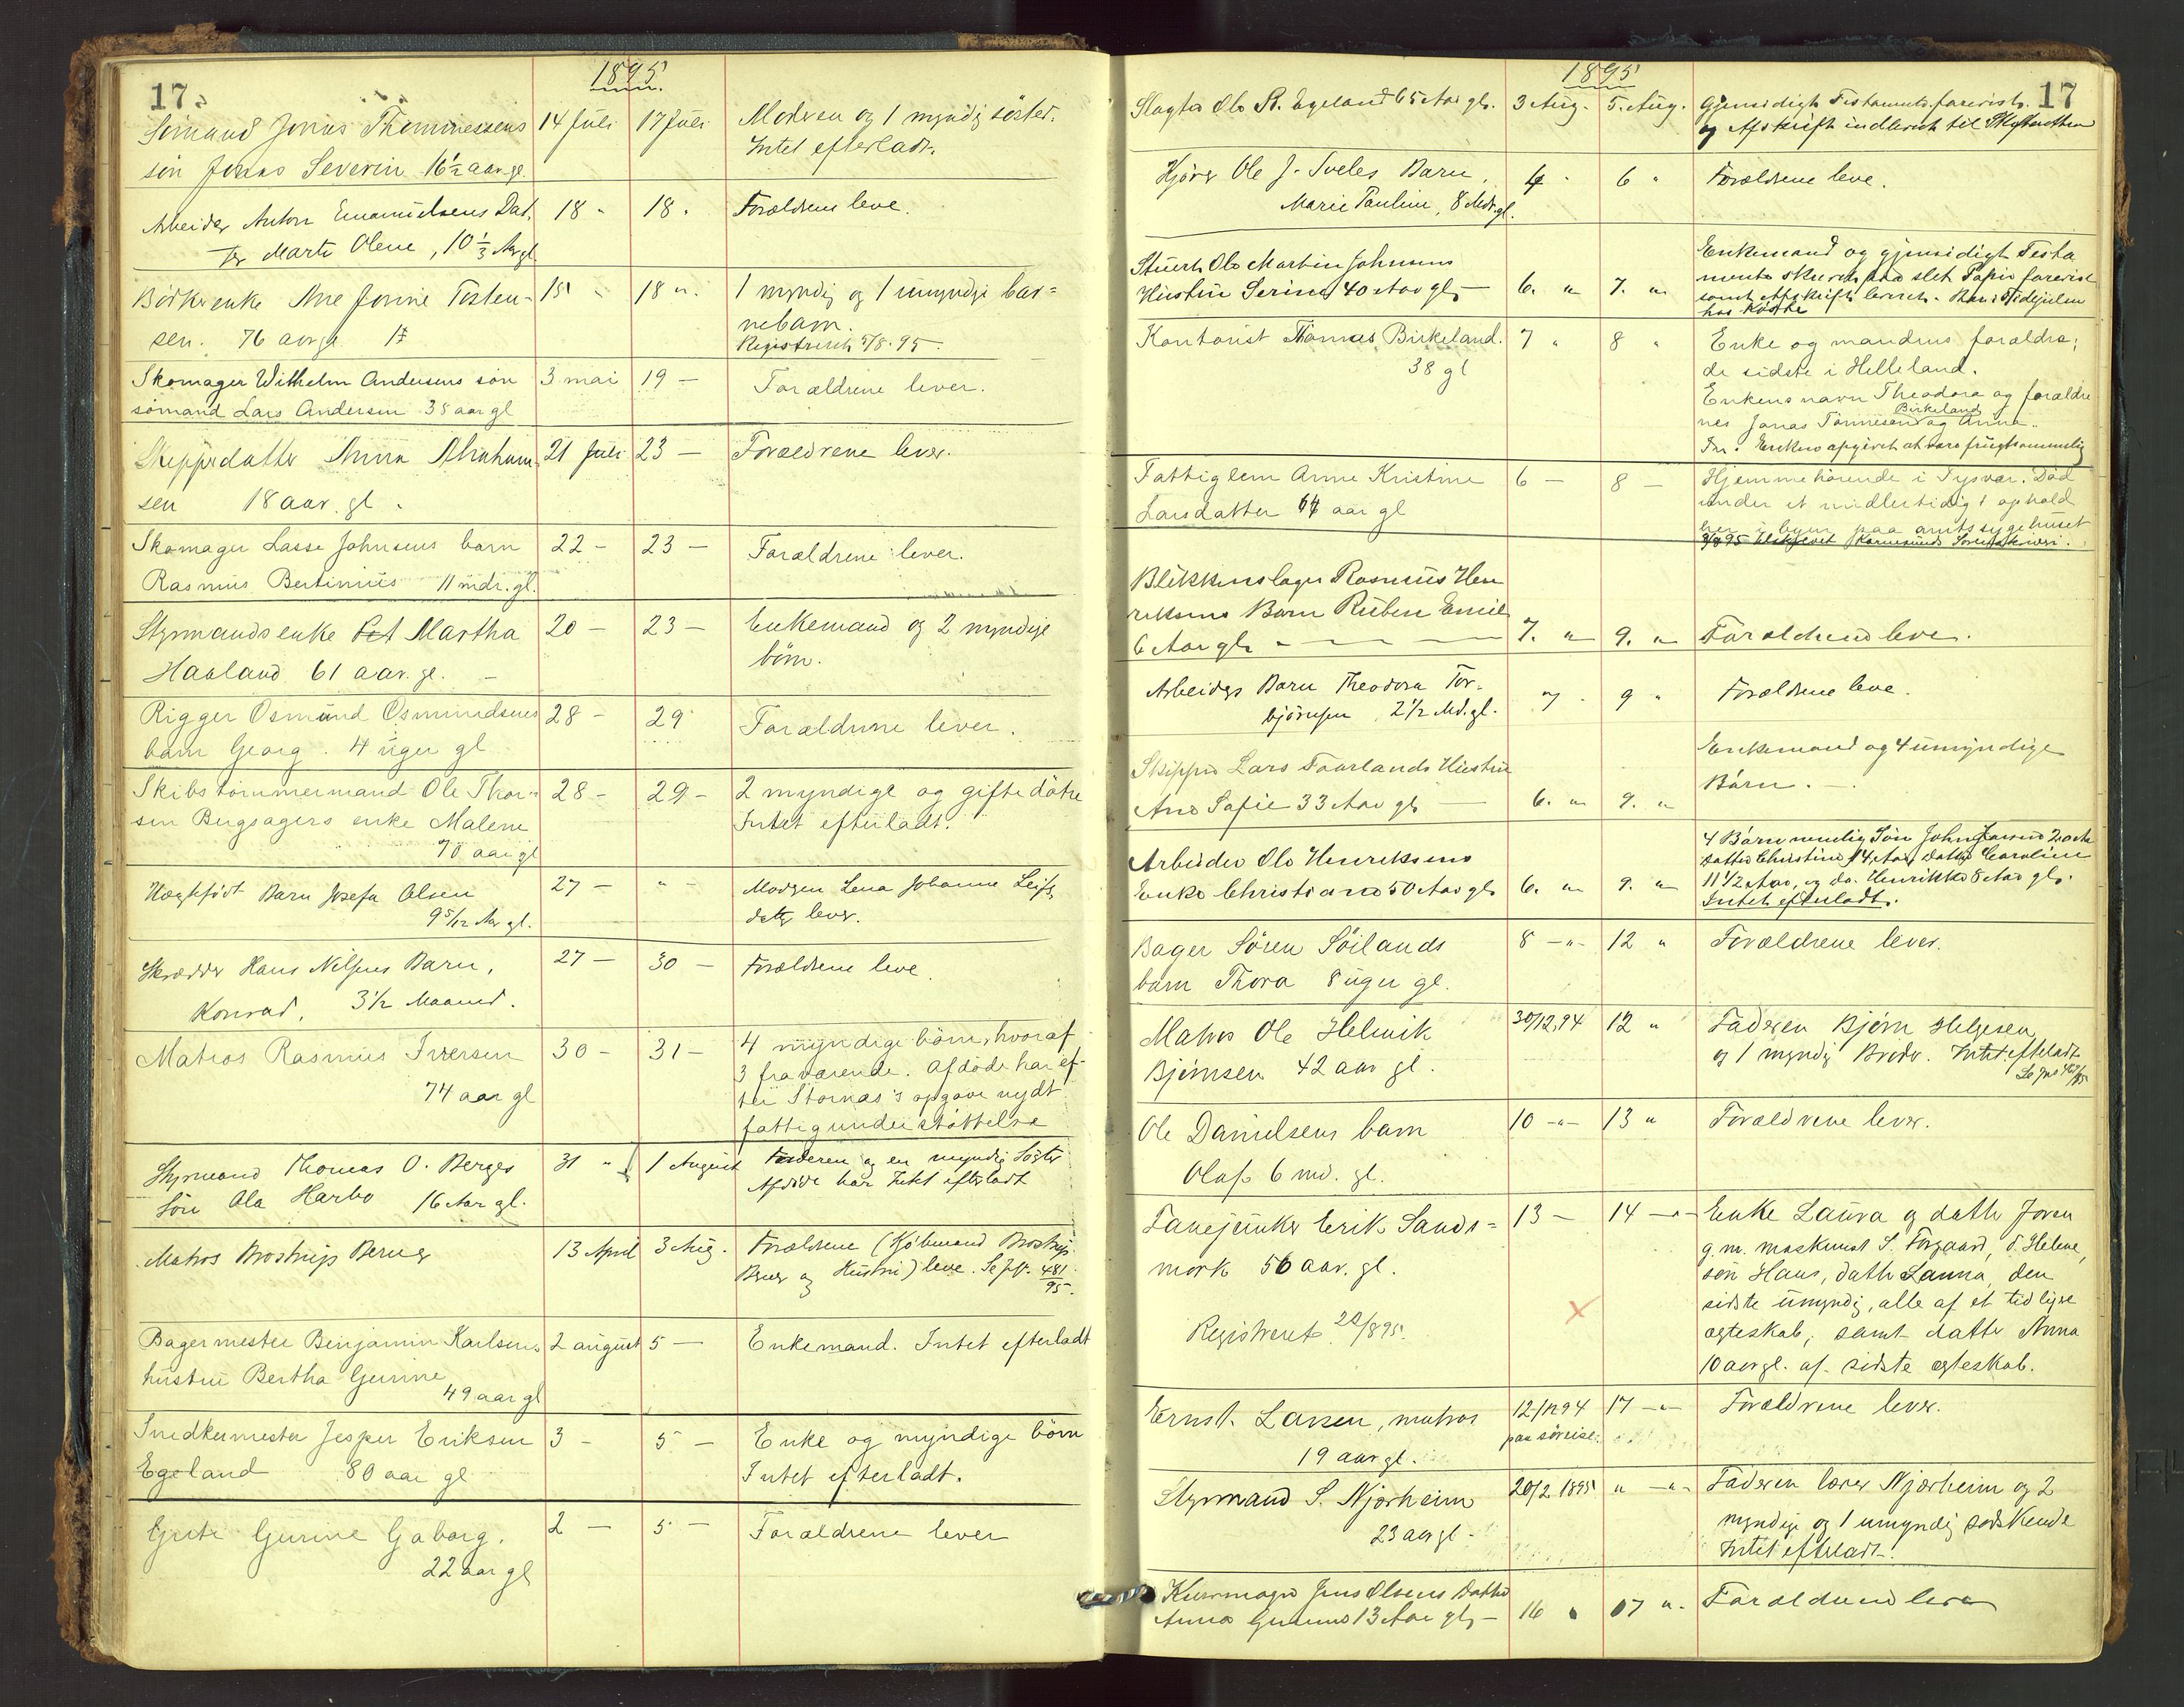 17.
1895
Sømand Jonas Thommessens 14 Juli 17 Juli Modren og 1 myndig søster.
søn Jonas Severin 16½ aar gl. Intet efterladt.
Arbeider Anton Emanuelsens Dat. 18 " 18 " Forældrene leve.
ter Marte Olene, 10⅓ Aar gl
Bødkerenke Ane Jonine Tosten- 15 " 18 " 1 myndig og 1 umyndige bar=
sen. 76 aar gl. nebarn.
Registreret 5/8.95.
Skomager Wilhelm Andersens søn 3 mai 19 — Forældrene lever.
sømand Lars Andersen 38 aar gl
Skipperdatter Anna Abraham- 21 Juli 23 — Forældrene lever.
sen 18 aar. gl.
Skomager Lasse Johnsens barn 22 — 23 — Forældrene lever.
Rasmus Bertinius 11 mdr. gl.
Styrmandsenke Martha 20 — 23 — Enkemand og 2 myndige
Haaland 61 aar. gl. — børn.
Rigger Osmund Osmundsens 28 — 29 Forældrene lever.
barn Georg. 4 uger gl
Skibstømmermand Ole Thor- 28 — 29 — 2 myndige og gifte døtre
sen Bugsagers enke Malene Intet efterladt.
70 aar gl
Uægtefødt Barn Josefa Olsen 27 — " — Modren Lena Johanne Leifs
9 5/12 Aar gl. datter lever.
Skrædder Hans Nilsens Barn, 27 — 30 — Forældrene leve.
Konrad, 3½ Maaned.
Matros Rasmus Iversen 30 — 31 — 4 myndige børn, hvoraf
74 aar gl 3 fraværende. Afdøde har ef-
ter Stornæs's opgave nydt
fattigunderstøttelse
Styrmand Thomas O. Berges 31 " 1 August Faderen og en myndig Søster
Søn Ola Harbo 16 Aar gl. Afdøde har Intet efterladt
Matros Brostrup Berner 13 April 3 Aug. Forældrene (Kjøbmand Brostrup
Berner og Hustru) leve. Se Jr. 481/95.
Bagermester Benjamin Karlsens 2 august 5 — Enkemand. Intet efterladt
hustru Bertha Gurine
49 aar gl
Snedkermester Jesper Eriksen 3 — 5 — Enke og myndige børn
Egeland 80 aar gl Intet efterladt.
Gurine Gaborg. 2 — 5 — Forældrene lever
22 aar gl
1895
17
Slagter Ole R. Egeland 65 Aar gl. 3 Aug. 5. Aug. Gjensidigt Testament forevist
og Afskrift indleveret til Skifteretten
Ole J. Tveles Barn, 4 " 6 " Forældrene leve.
Marie Pauline, 8 Mdr. gl.
Enkemand og gjensidigt Testa
Stuert Ole Martin Johnsens mente slet Papir forevist
Hustru Serine 40 Aar gl. — 6. " 7. " samt Afskrift leveret.
Kontorist Thomas Birkeland. 7 " 8 " Enke og mandens forældre;
38 gl de sidste i Helleland.
Enkens navn Theodora og forældre
Birkeland
nes Jonas Tønnesen og Anna.
Enken opgivet at være frugtsommelig
Fattiglem Anne Kristine 6 — 8 — Hjemmehørende i Tysvær. Død
Larsdatter 64 aar gl under et midlertidigt ophold
her i byen paa amtssygehuset
Karmsunds Sorenskriveri.
Blikkenslager Rasmus Hen
reksens Barn Ruben Emil
6 Aar gl. 7. " 9. " Forældrene leve.
Arbeiders Barn Theodora Tor- 7 " 9 " Forældrene leve.
bjørnsen, 2½ Md. gl.
Enkemand og 4 umyndige
Skipper Lars Foorlands Hustru Børn. —
Ane Sofie 33 Aar gl. — 6. " 9. "
4 Børn nemlig Søn John 20 Aar
Arbeider Ole Henreksens Datter Christine 14 Aar, Datter Caroline
Enke Christiane 50 Aar gl. 6. " 9. " 11½ Aar, og do. Henrikke 8 Aar gl.
Intet efterladt.
Bager Søren Søilands 8 —"— 12 " Forældrene lever.
barn Thora 8 uger gl.
Matros Ole Helmik 30/12.94 12 " Faderen Bjørn Helgesen
Bjørnsen 42 aar gl. og 1 myndig Broder. Intet efterladt
Ole Danielsens barn 10 —"— 13 " Forældrene lever.
Olaf 6 md. gl.
Fanejunker Erik Sands= 13 — 14 —"— Enke Laura og datter Joren
mork 56 aar. gl. g. m. maskinist S. Torgaard, d. Helene,
søn Hans, datter Lanna, den
Registreret 22/8 95. sidste umyndig, alle af et tidligere
ægteskab; samt datter Anna
10 aar gl. af sidste ægteskab.
Ernst Larsen, matros 12/12 94 17 —"— Forældrene lever.
19 aar gl. paa søreise.
Styrmand S. Njærheim 20/2 1895 " —"— Faderen lærer Njærheim og 2
23 aar gl. — myndige og 1 umyndig sødskende
Intet efterladt.
Jens Olsens Datter
Anna Gurine 13 Aar gl. — 16 " 17 " Forældrene leve